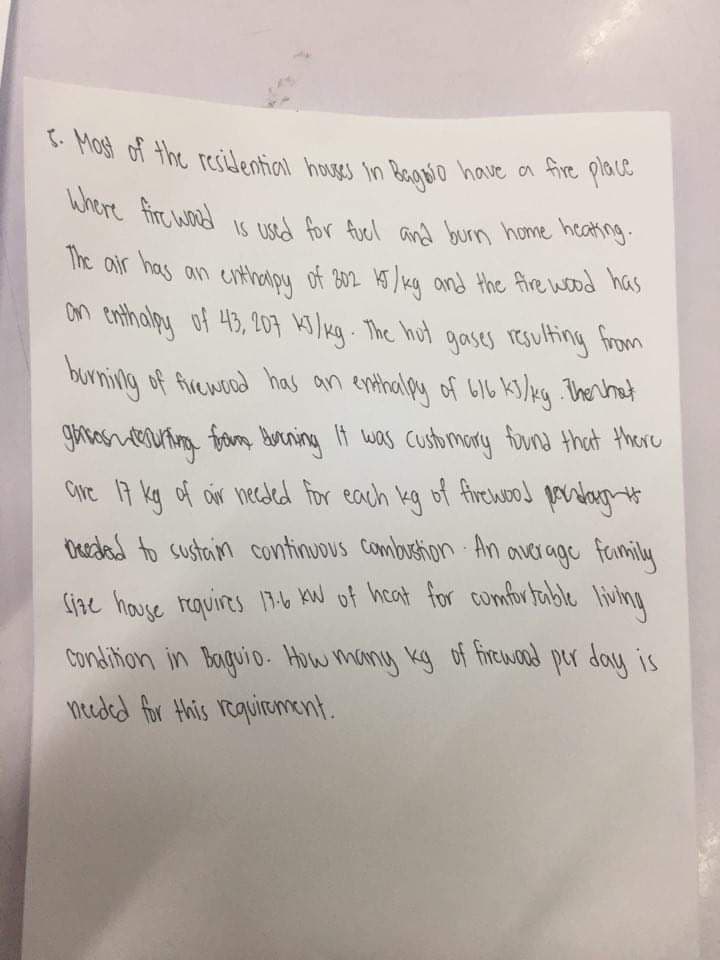 5. Most of the residential houses in Baguio have a fire place
Where firewood is used for fuel and burn home heating.
The air has an enthalpy of 302 kJ/kg and the firewood has
an enthalpy of 43,207 kJ/kg. The hot gases resulting from
burning of firewood has an enthalpy of 616 kJ/kg. The hot
gases resulting from burning It was customary found that there
are 17 kg of air needed for each kg of firewood per day is
needed to sustain continuous combustion. An average family
size house requires 17.6 kW of heat for comfortable living
condition in Baguio. How many kg of firewood per day is
needed for this requirement.